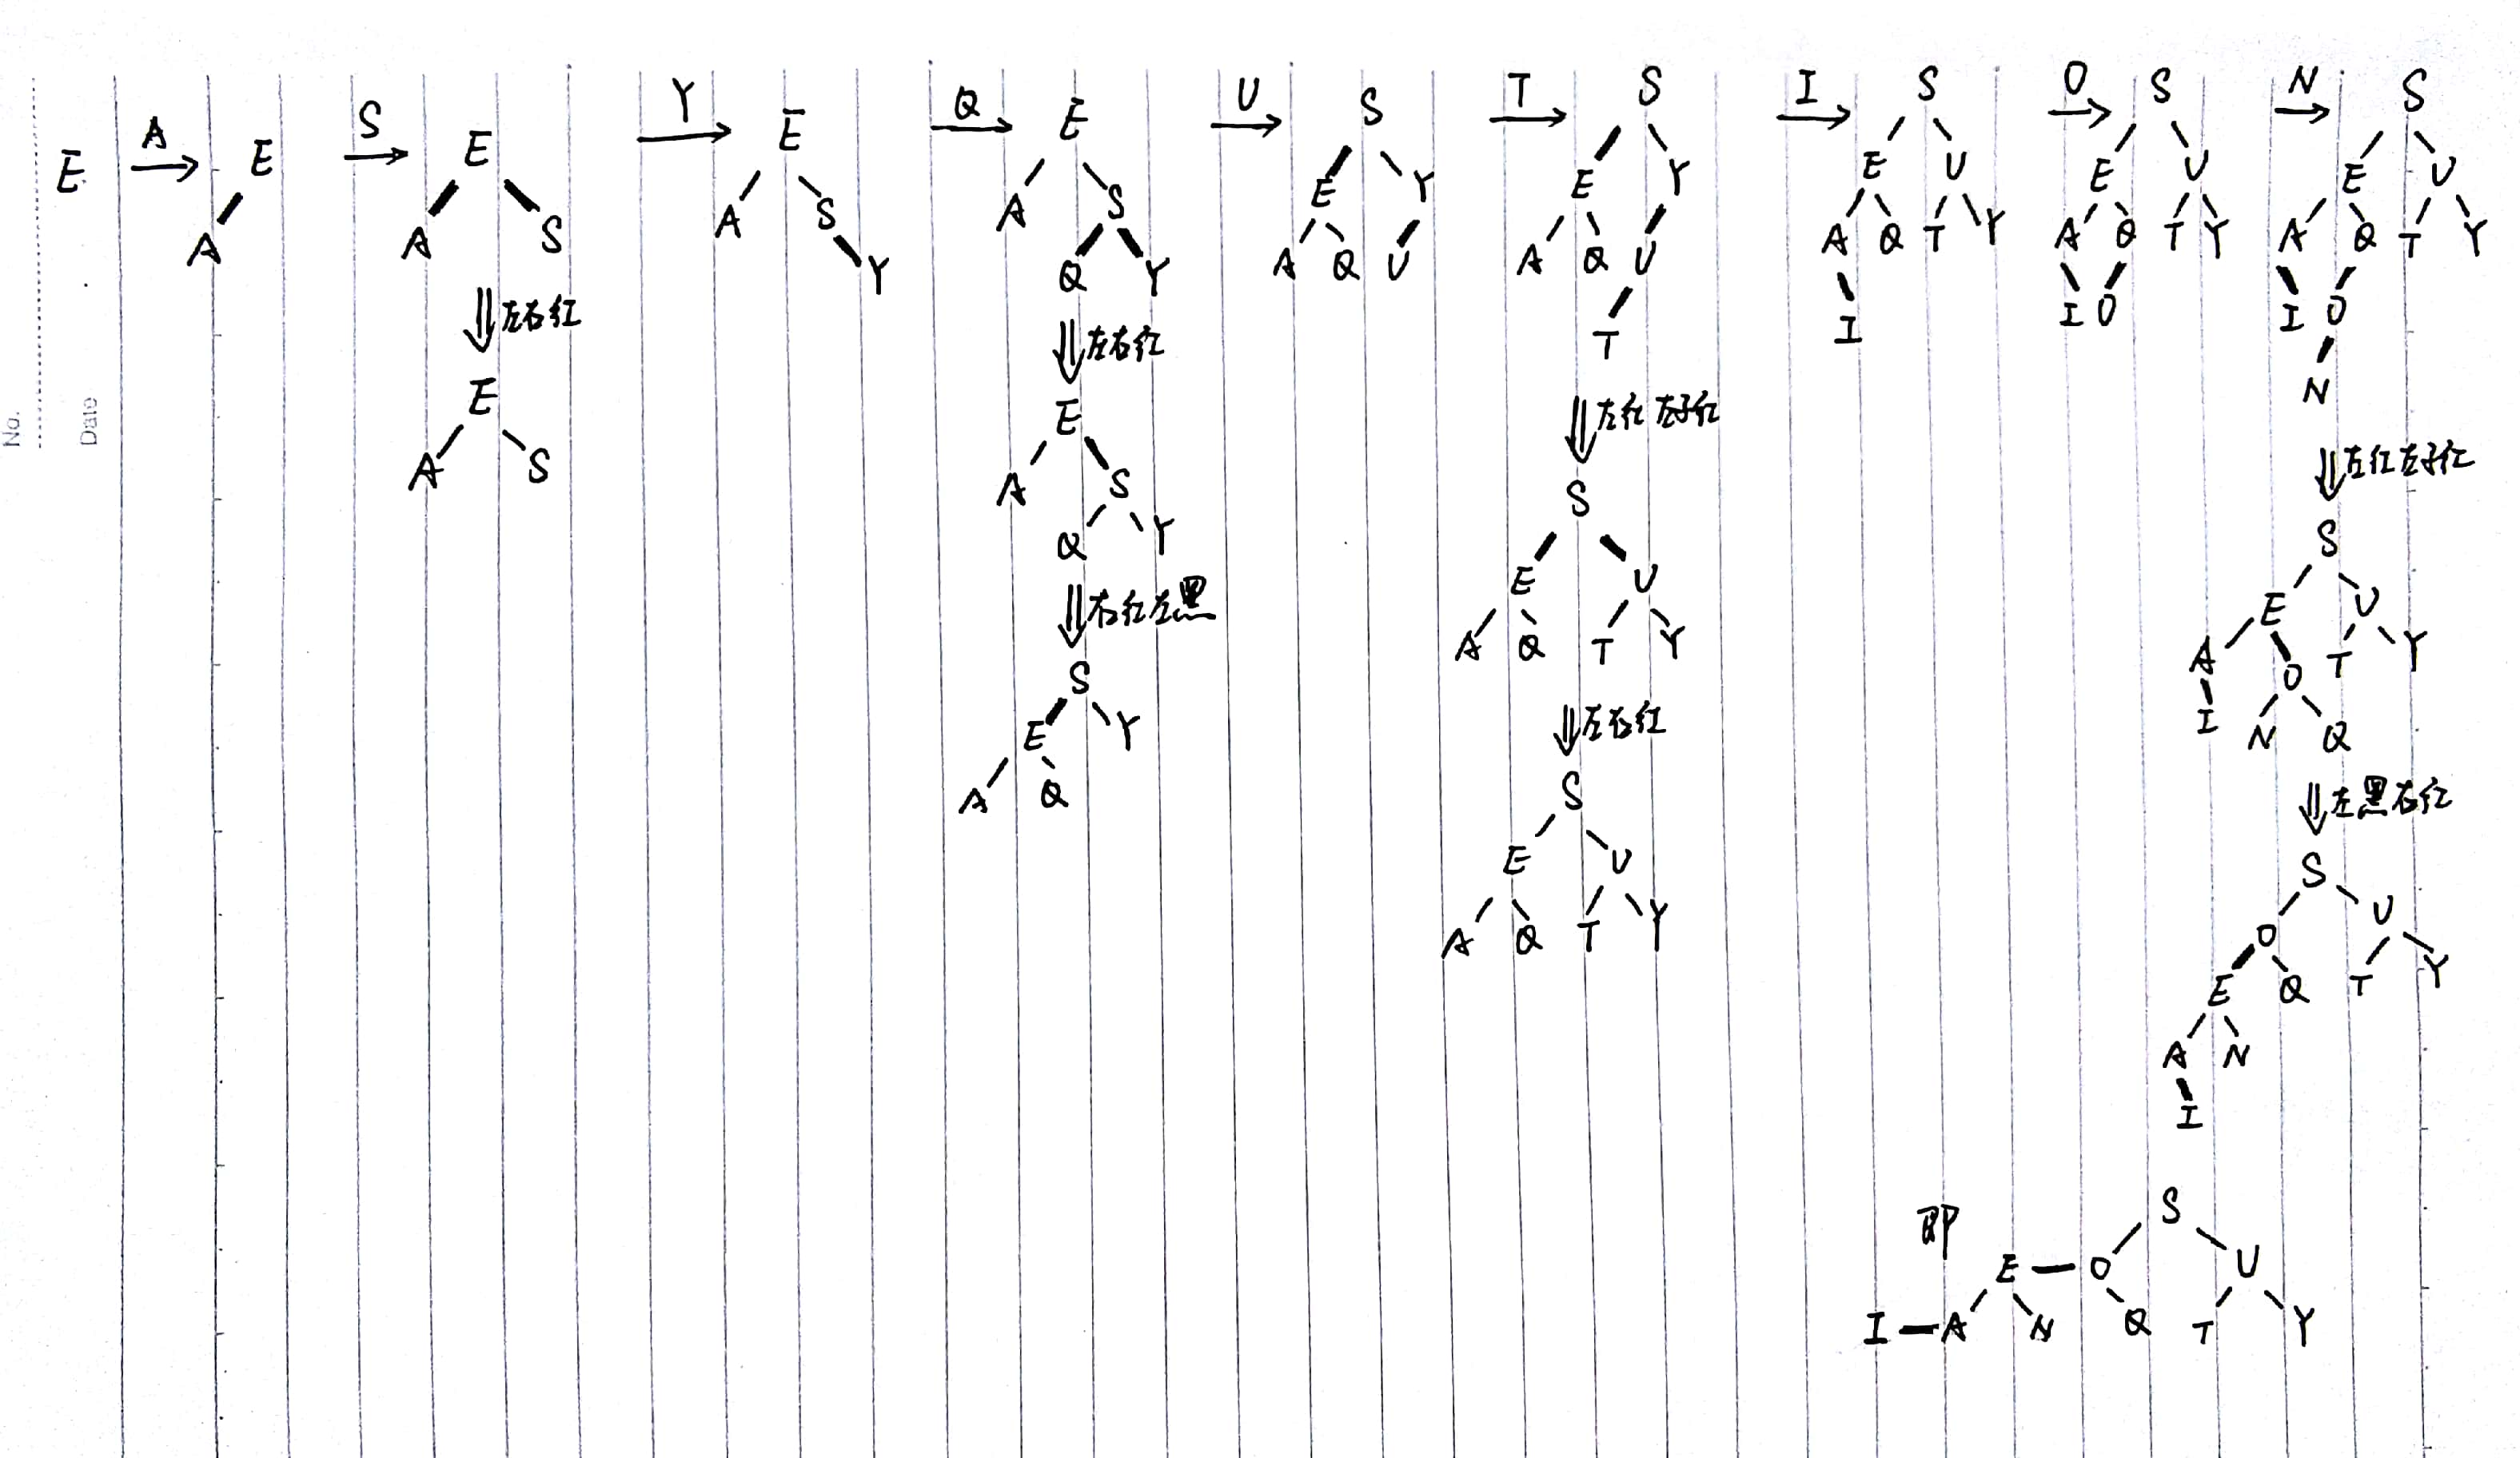 No.
Date
E
A
E
A
S
E
A S
左右红
E
A S
Y
E
A S
Y
Q
E
A S
Q Y
左右红
E
A S
Q Y
右红左黑
S
E Y
A Q
U
S
E Y
A Q U
T
S
E Y
A Q U
T
左红左子红
S
E U
A Q T Y
左右红
S
E U
A Q T Y
I
S
E U
A Q T Y
I
O
S
E U
A Q T Y
I O
N
S
E U
A Q T Y
I O
N
左红左子红
S
E U
A O T Y
I N Q
左黑右红
S
O U
E Q T Y
A N
I
即
S
E O U
I A N Q T Y